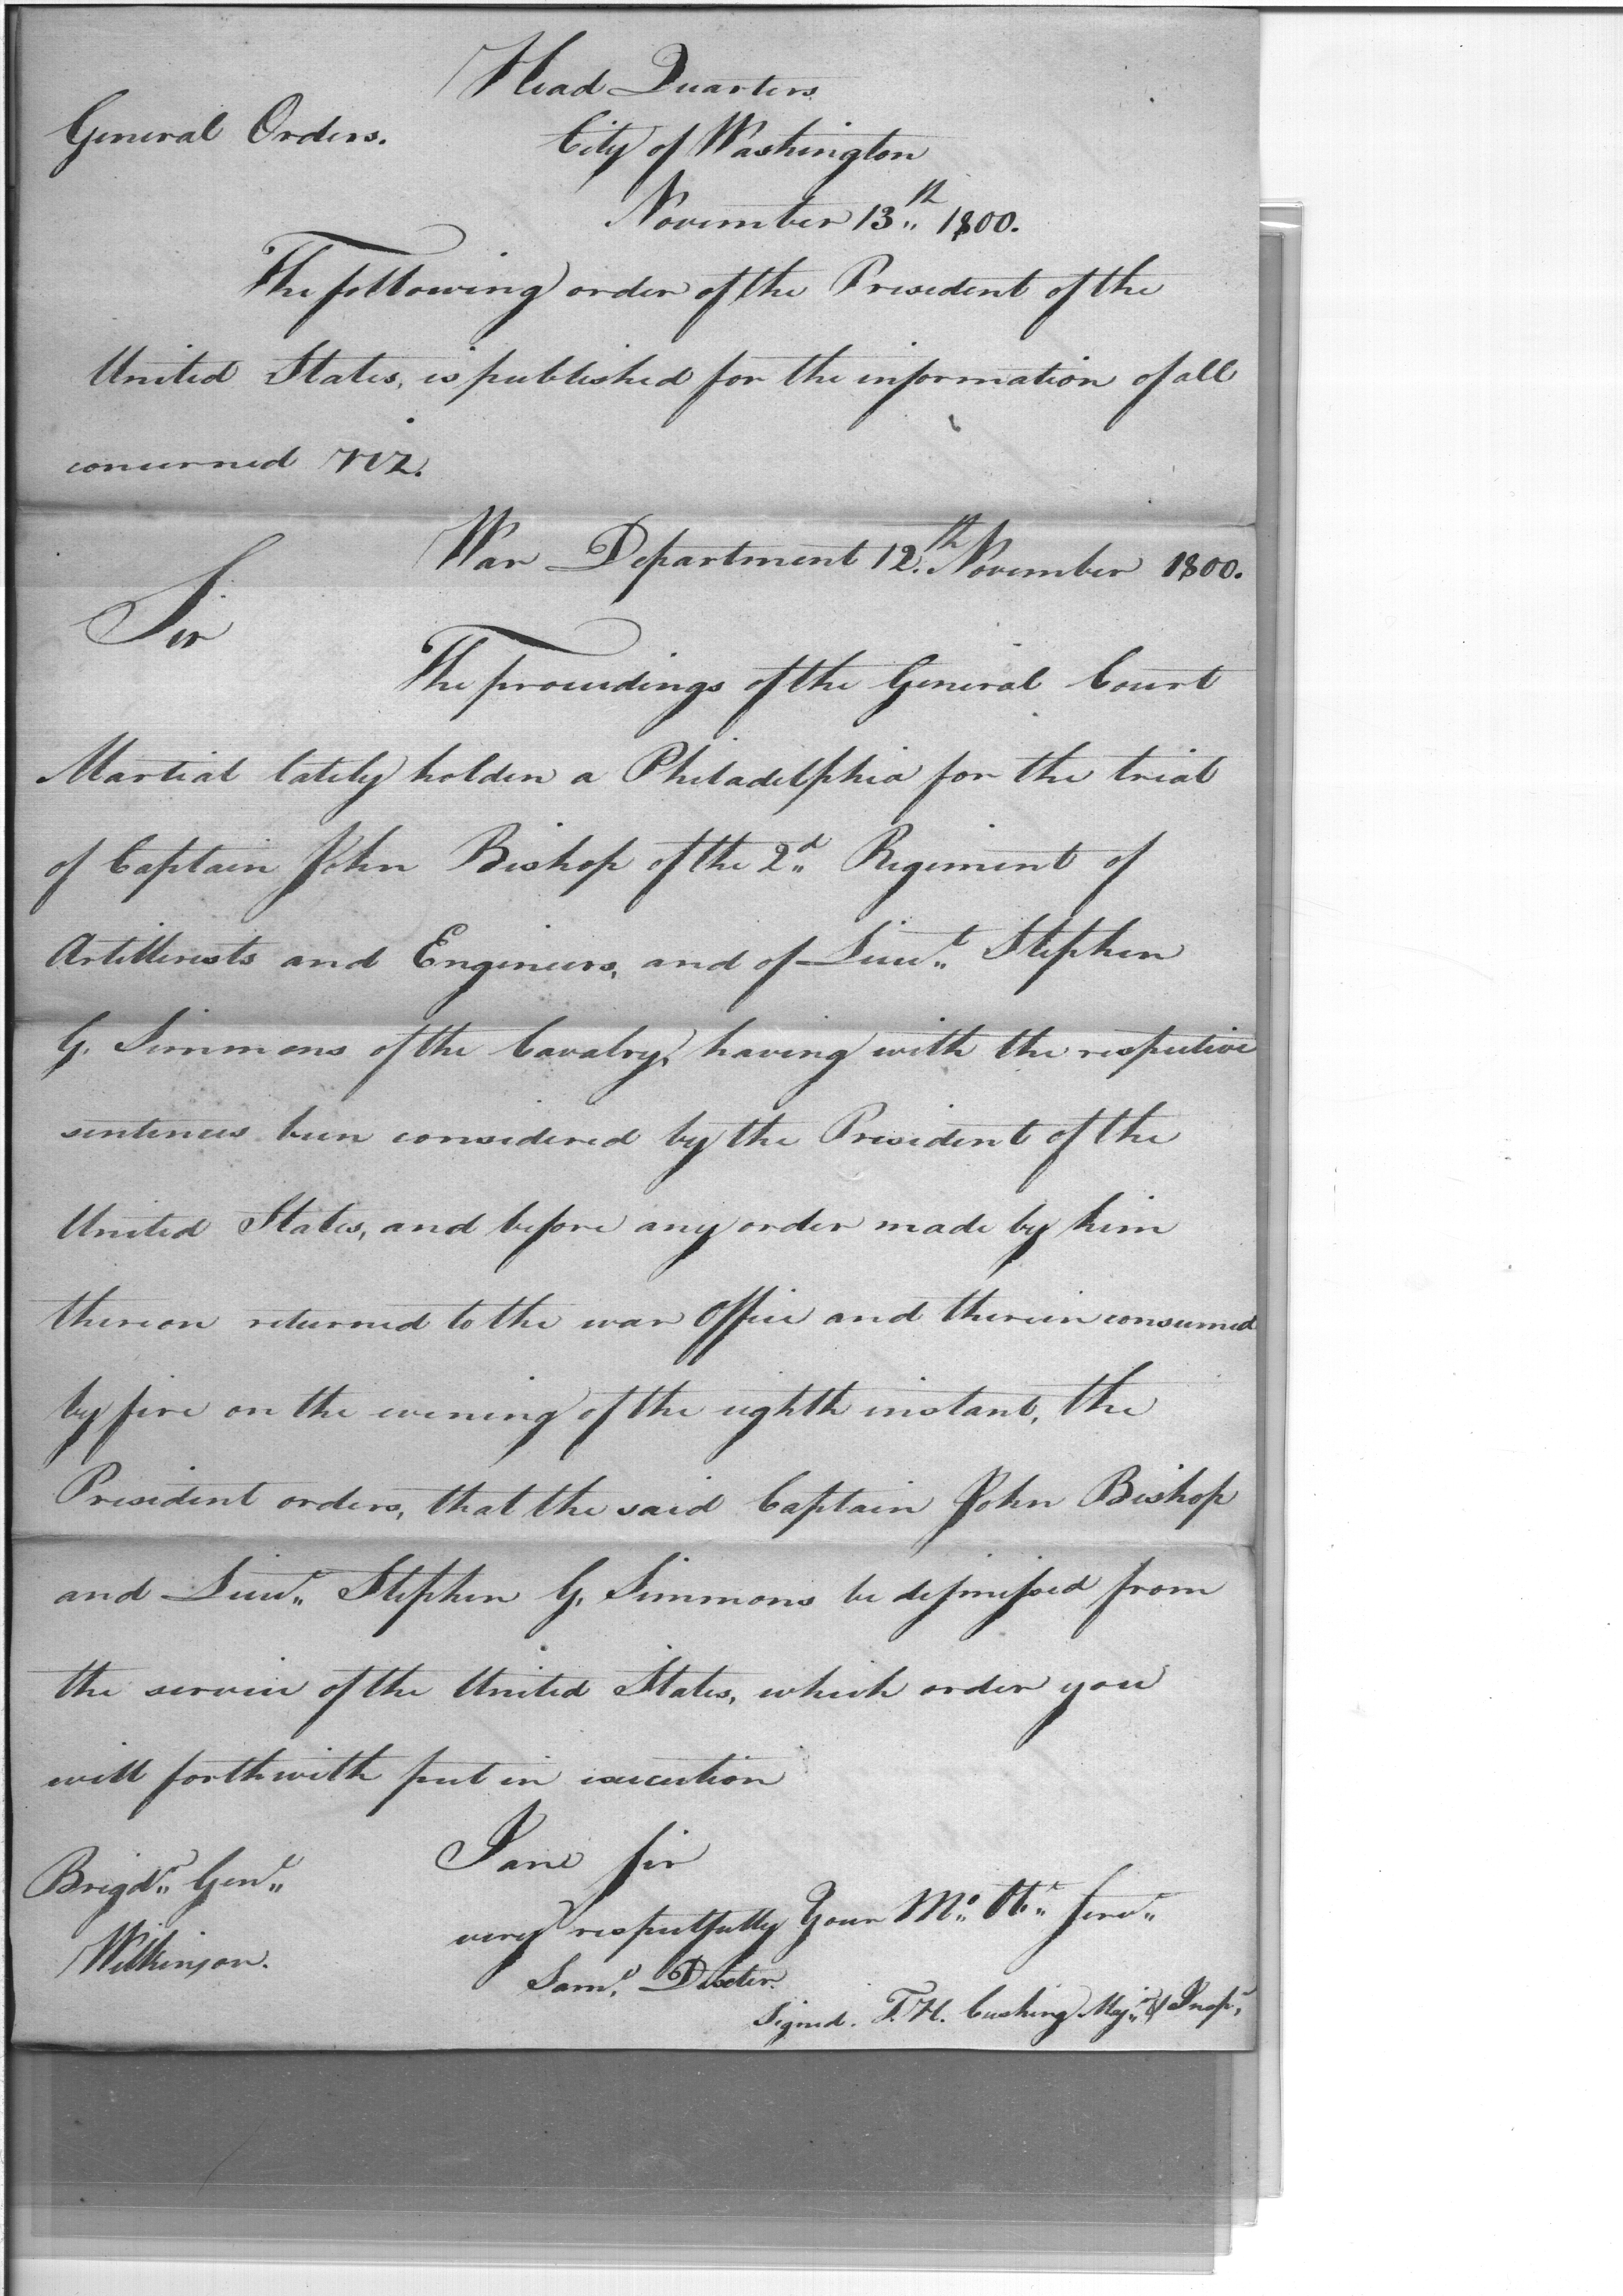 Head Quarters
General Orders. City of Washington
November 13th 1800.
The following order of the President of the
United States, is published for the information of all
concerned VIZ.
War Department 12th November 1800.
Sir
The proceedings of the General Court
Martial lately holden a Philadelphia for the trial
of Captain John Bishop of the 2d Regiment of
Artillerists and Engineers, and of Lieut Stephen
G. Simmons of the Cavalry, having with the respective
sentences been considered by the President of the
United States, and before any order made by him
thereon returned to the war Office and therein consumed
by fire on the evening of the eighth instant, the
President orders, that the said Captain John Bishop
and Lieut Stephen G. Simmons be dismissed from
the service of the United States, which order you
will forthwith put in execution
I am Sir
Brigdr Genl very respectfully Your Mo Ot Servt
Wilkinson. Saml Dexter.
Signed. T. H. Cushing Majr & Inspr